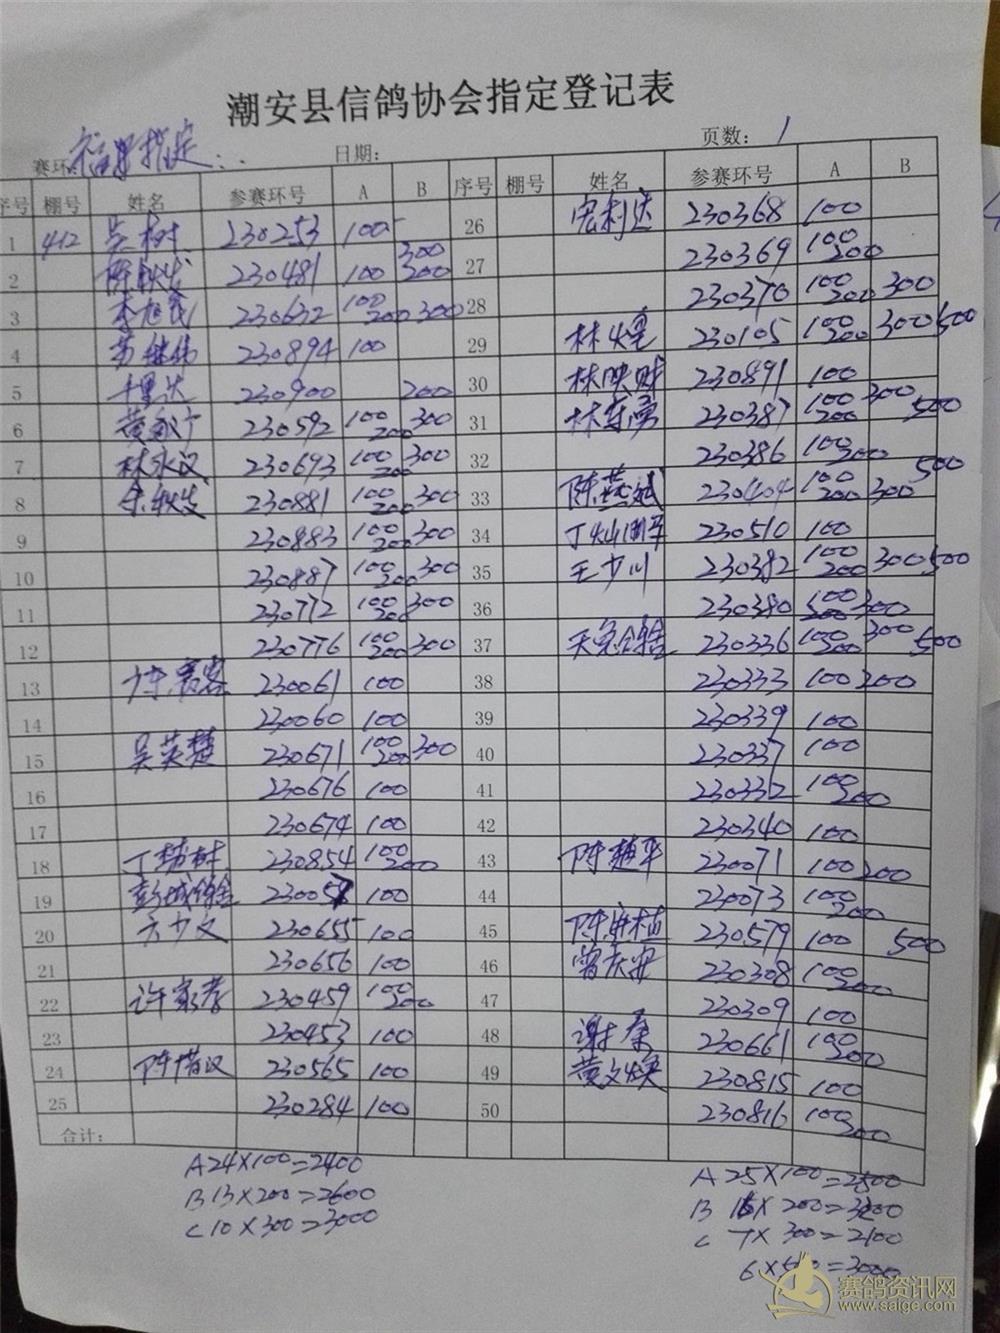 潮安县信鸽协会指定登记表
赛环: 指定 日期: 页数: 1
序号 棚号 姓名 参赛环号 A B 序号 棚号 姓名 参赛环号 A B
1 412 吴树 230253 100 26 宏利达 230368 100
2 陈秋发 230481 100 200 300 27 230369 100 200
3 李旭民 230632 100 200 300 28 230370 100 200 300
4 苏继伟 230894 100 29 林煌 230105 100 200 300 500
5 千里达 230900 200 30 林映财 230891 100
6 230592 100 200 300 31 林东勇 230387 100 200 300 500
7 林永汉 230693 100 200 300 32 230386 100 200
8 余秋发 230881 100 200 300 33 陈燕斌 230404 100 200 300 500
9 230883 100 200 300 34 230510 100
10 230887 100 200 300 35 王少川 230382 100 200 300 500
11 230772 100 200 300 36 230380 300
12 230776 100 200 300 37 230336 100 200 300 500
13 230061 100 38 230333 100 200
14 230060 100 39 230339 100
15 吴英楚 230671 100 200 300 40 230337 100
16 230676 100 41 230332 100 200
17 230674 100 42 230340 100
18 230854 100 200 43 陈楚平 230071 100 200
19 100 44 230073 100 200
20 方少文 230655 100 45 230579 100 500
21 230656 100 46 曾庆安 230308 100 200
22 许家孝 230459 100 200 47 230309 100
23 230453 100 48 谢 230661 100 200
24 陈惜汉 230565 100 49 黄文焕 230815 100
25 230284 100 50 230816 100 200
合计:
A 24×100=2400 A 25×100=2500
B 13×200=2600 B 16×200=3200
C 10×300=3000 C 7×300=2100
6×500=3000
赛鸽资讯网
www.saige.com